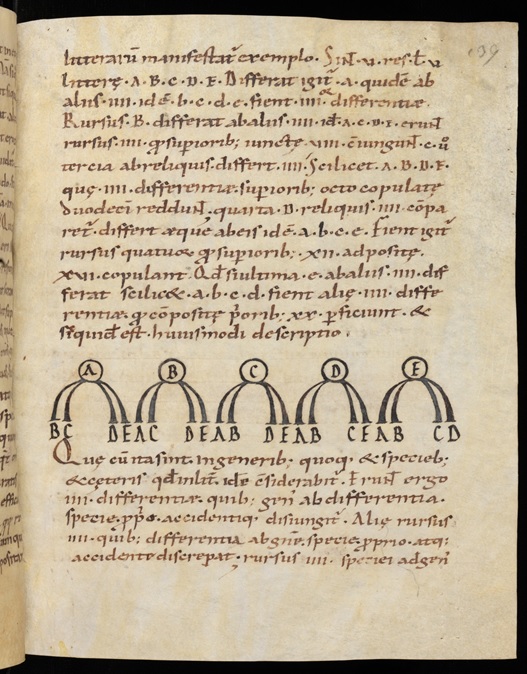 139
litterarū manifestat̄ exemplo. Sin̄t .v. res. l̄ .v.
litterę .A.B.C.D.E. Differat igit̄ .a. quidē ab
aliis .IIII. idē .b.c.d.e. fient .IIII. differentiæ.
Rursus .B. differat ab aliis .IIII. id ē .A.C.D.E. erun̄t
rursus .IIII. q̄ supiorib; iunctę .VIII. c̄iungun̄t. c. ů
tercia ab reliquis differt .IIII. Scilicet .A.B.D.E.
quę .IIII. differentiæ supiorib; octo copulatę
duodeci reddun̄t. quarta .D. reliquis .IIII. cōpa
ret̄. differt æque ab eis idē .a.b.c.e. Fient igit̄
rursus quatuor q̄ supiorib; .XII. adpositę.
XVI. copulant̄. Qd̄ si ultima .e. ab aliis .IIII. dif
ferat scilic& .a.b.c.d. fient alię .IIII. diffe
rentiæ. q̄ cōpositę p̄orib; .XX. p̄ficiunt. &
s̄t quid̄ est huiusmodi descriptio.
A B C D E
BC DE AC DE AB DE AB CE AB CD
Quę cū ita sint. in generib; quoq; & specieb;
& ceteris qd̄ nilit̄. idē c̄siderabit̄. Erun̄t ergo
IIII. differentiæ. quib; gen̄ ab differentia.
specie. p̄p̄o. accidentiq; disiungit̄. Alię rursus
IIII. quib; differentia ab gn̄e. specie. p̄prio. atq;
accidente discrepat. rursus .IIII. speciei ad gen̄